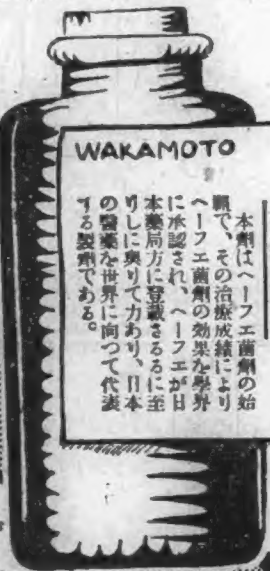 WAKAMOTO
本劑はヘーフエ菌劑の始
親で、その治療成績により
ヘーフエ菌劑の効果を學界
に承認され、ヘーフエが日
本藥局方に登載さるるに至
りしに與りて力あり、日本
の醫藥を世界に向つて代表
する製劑である。